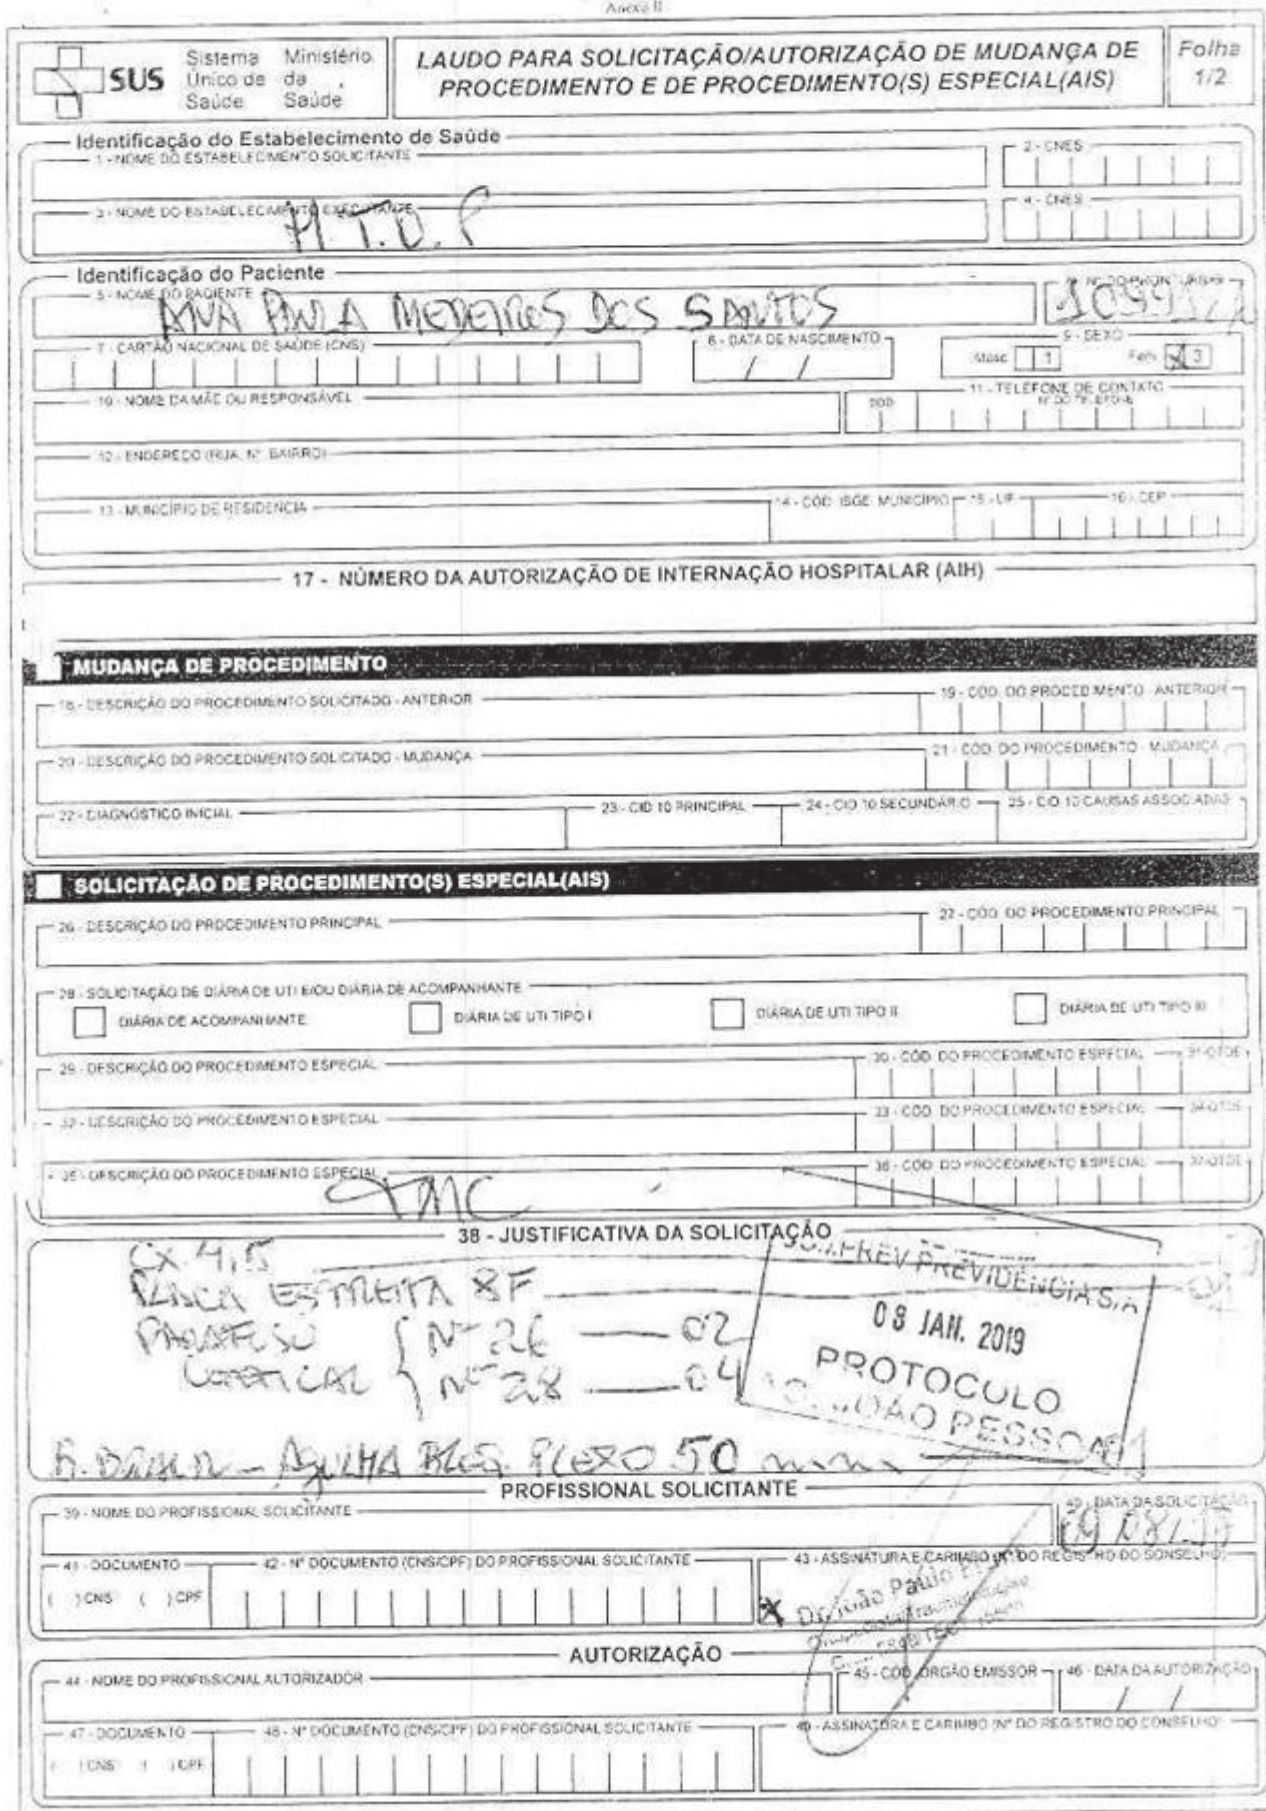 Anexo II
SUS
Sistema Único de Saúde
Ministério da Saúde
LAUDO PARA SOLICITAÇÃO/AUTORIZAÇÃO DE MUDANÇA DE PROCEDIMENTO E DE PROCEDIMENTO(S) ESPECIAL(AIS)
Folha 1/2
Identificação do Estabelecimento de Saúde
1 - NOME DO ESTABELECIMENTO SOLICITANTE
2 - CNES
3 - NOME DO ESTABELECIMENTO EXECUTANTE
4 - CNES
Identificação do Paciente
5 - NOME DO PACIENTE
ANA PAULA MEDEIROS DOS SANTOS
7 - CARTÃO NACIONAL DE SAÚDE (CNS)
8 - DATA DE NASCIMENTO
/ /
9 - SEXO
Masc 1 Fem X 3
10 - NOME DA MÃE OU RESPONSÁVEL
11 - TELEFONE DE CONTATO
DDD Nº DO TELEFONE
12 - ENDEREÇO (RUA, Nº, BAIRRO)
13 - MUNICÍPIO DE RESIDÊNCIA
14 - CÓD. IBGE MUNICÍPIO
15 - UF
16 - CEP
17 - NÚMERO DA AUTORIZAÇÃO DE INTERNAÇÃO HOSPITALAR (AIH)
MUDANÇA DE PROCEDIMENTO
18 - DESCRIÇÃO DO PROCEDIMENTO SOLICITADO - ANTERIOR
19 - CÓD. DO PROCEDIMENTO - ANTERIOR
20 - DESCRIÇÃO DO PROCEDIMENTO SOLICITADO - MUDANÇA
21 - CÓD. DO PROCEDIMENTO - MUDANÇA
22 - DIAGNÓSTICO INICIAL
23 - CID 10 PRINCIPAL
24 - CID 10 SECUNDÁRIO
25 - CID 10 CAUSAS ASSOCIADAS
SOLICITAÇÃO DE PROCEDIMENTO(S) ESPECIAL(AIS)
26 - DESCRIÇÃO DO PROCEDIMENTO PRINCIPAL
27 - CÓD. DO PROCEDIMENTO PRINCIPAL
28 - SOLICITAÇÃO DE DIÁRIA DE UTI E/OU DIÁRIA DE ACOMPANHANTE
DIÁRIA DE ACOMPANHANTE
DIÁRIA DE UTI TIPO I
DIÁRIA DE UTI TIPO II
DIÁRIA DE UTI TIPO III
29 - DESCRIÇÃO DO PROCEDIMENTO ESPECIAL
30 - CÓD. DO PROCEDIMENTO ESPECIAL
31-QTDE
32 - DESCRIÇÃO DO PROCEDIMENTO ESPECIAL
33 - CÓD. DO PROCEDIMENTO ESPECIAL
34-QTDE
35 - DESCRIÇÃO DO PROCEDIMENTO ESPECIAL
36 - CÓD. DO PROCEDIMENTO ESPECIAL
37-QTDE
TMC
38 - JUSTIFICATIVA DA SOLICITAÇÃO
Cx 4,5
PLACA ESTREITA 8F
PARAFUSO Nº 26 — 02
CORTICAL Nº 28 — 04
PREVIDÊNCIA S/A
08 JAN. 2019
PROTOCOLO
JOÃO PESSOA
AGULHA BLOQ. PLEXO 50 mm — 01
PROFISSIONAL SOLICITANTE
39 - NOME DO PROFISSIONAL SOLICITANTE
40 - DATA DA SOLICITAÇÃO
41 - DOCUMENTO
( ) CNS ( ) CPF
42 - Nº DOCUMENTO (CNS/CPF) DO PROFISSIONAL SOLICITANTE
43 - ASSINATURA E CARIMBO (Nº DO REGISTRO DO CONSELHO)
Dr. João Paulo
AUTORIZAÇÃO
44 - NOME DO PROFISSIONAL AUTORIZADOR
45 - CÓD. ORGÃO EMISSOR
46 - DATA DA AUTORIZAÇÃO
/ /
47 - DOCUMENTO
( ) CNS ( ) CPF
48 - Nº DOCUMENTO (CNS/CPF) DO PROFISSIONAL SOLICITANTE
49 - ASSINATURA E CARIMBO (Nº DO REGISTRO DO CONSELHO)